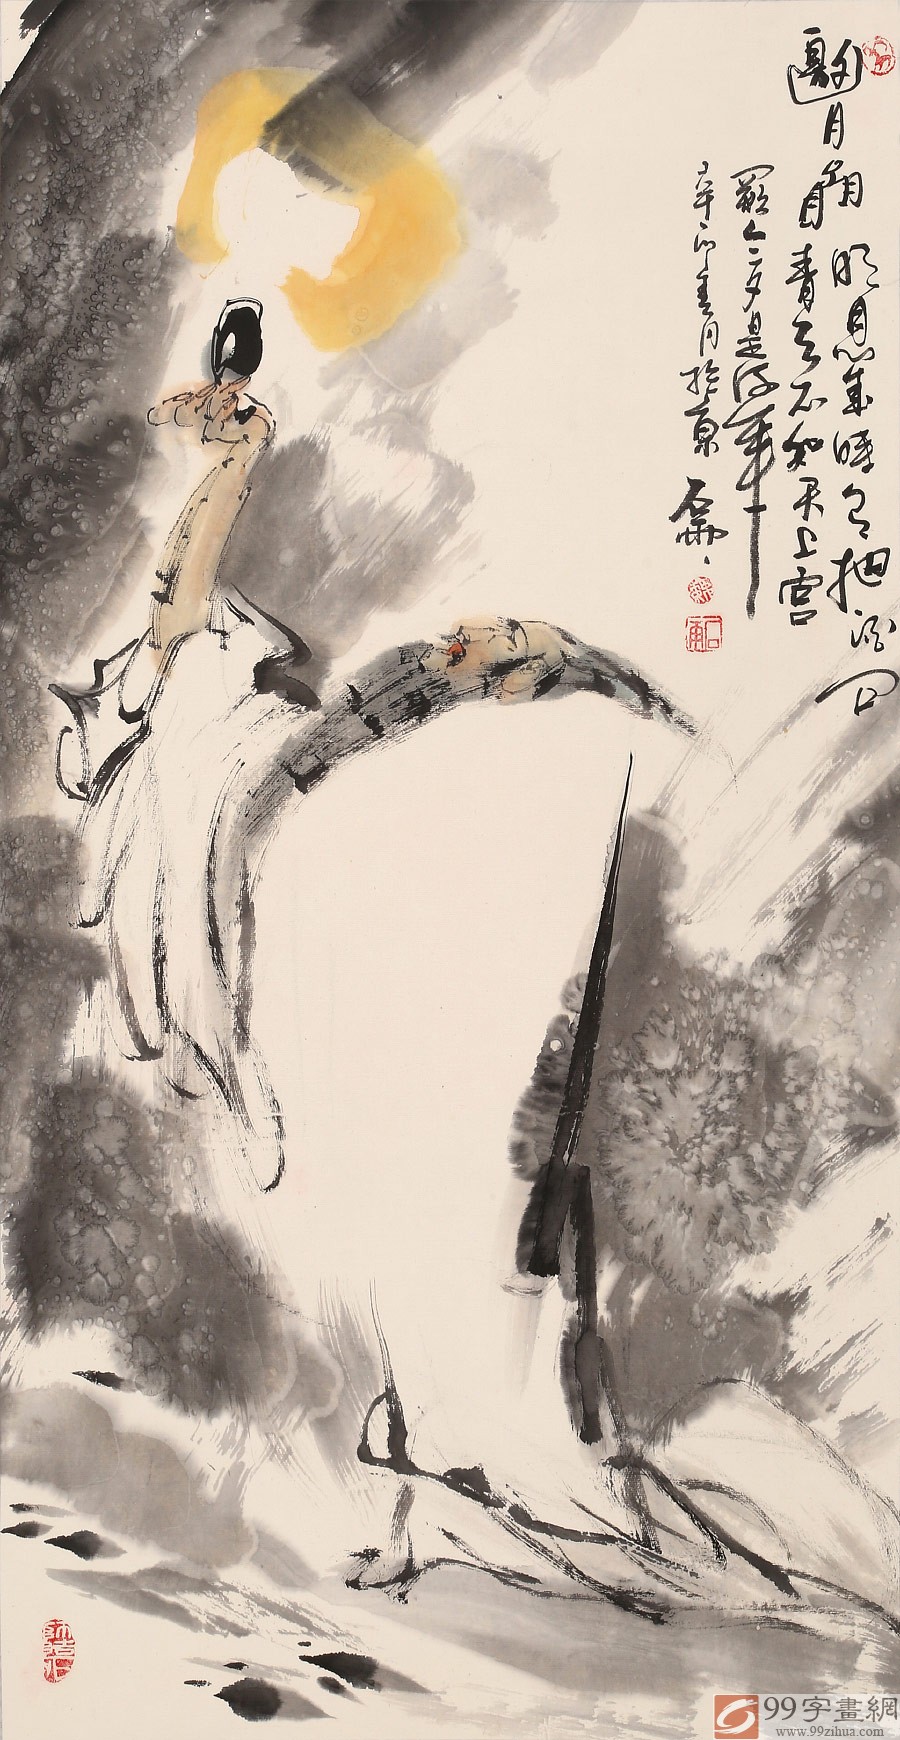 邀月
明月幾時有把酒問
青天不知天上宮
闕今夕是何年
辛卯春月於京
99字畫網
www.99zihua.com